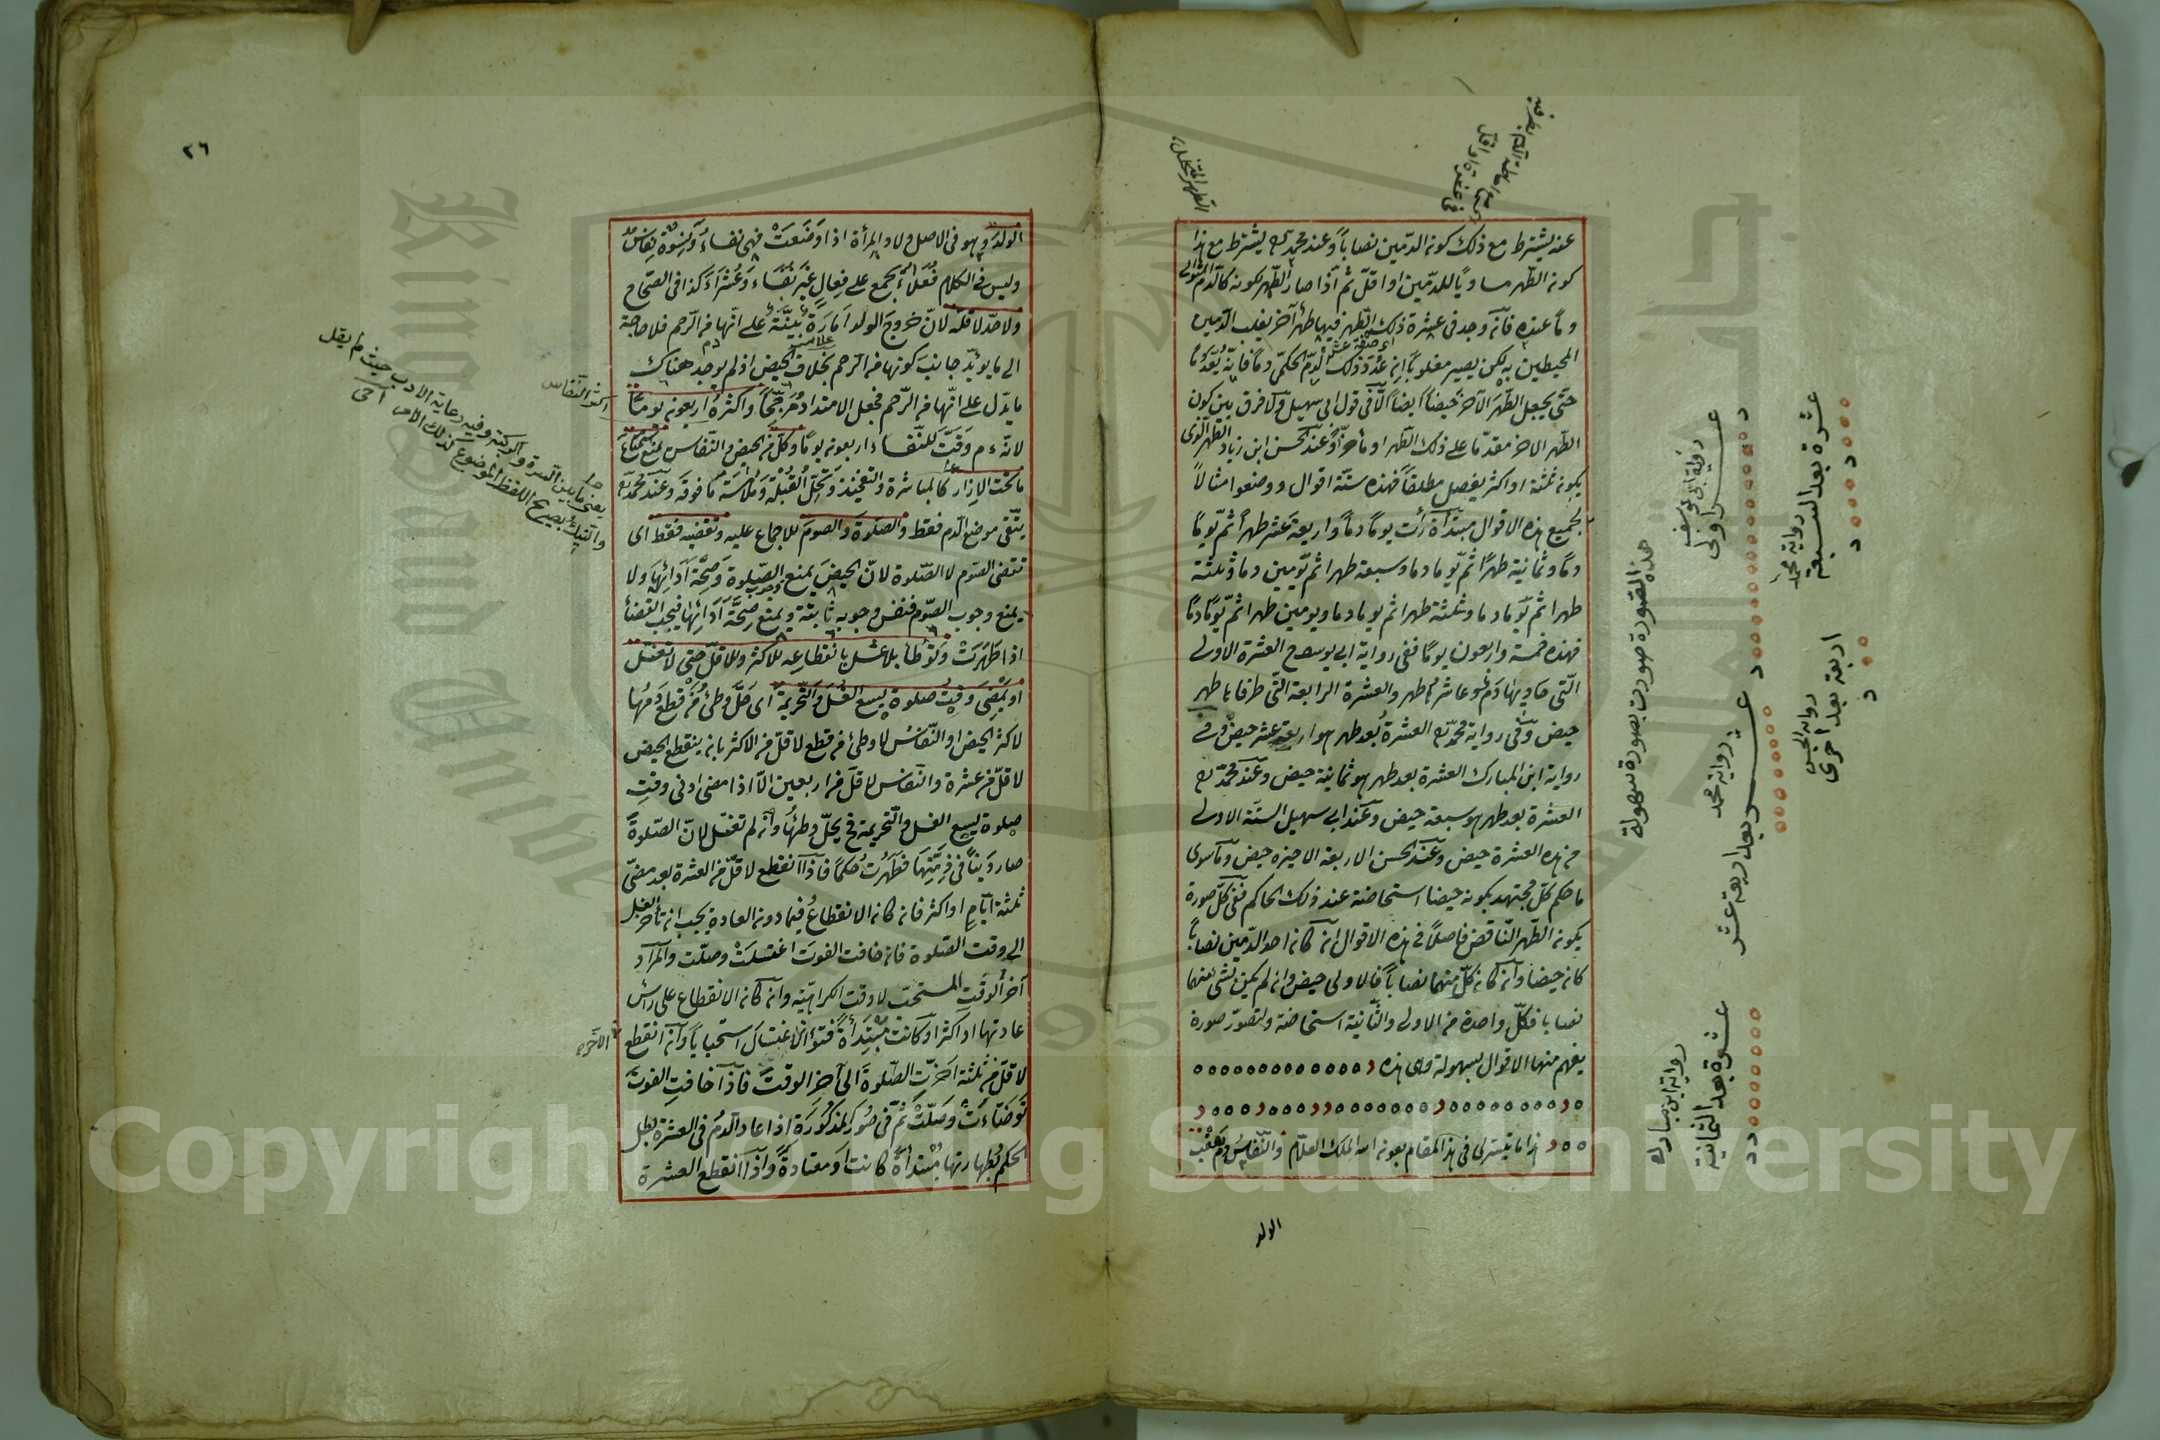 عنه يشترط مع ذلك كونه الدمين نصابا وعند محمد يشترط مع هذا
كونه الطهر مساويا للدمين او اقل ثم اذا صار الطهر لكونه كالدم المتوالي
وما عنده فانه وجد في عشرة ذلك الطهر فيها طهر آخر يغلب الدمين
المحيطين به لكن يصير مغلوبا ان عد ذلك الدم الحكمي دما فانه يعد دما
حتى يجعل الطهر الآخر حيضا ايضا الا في قول ابي سهيل ولا فرق بين كون
الطهر الاخر مقدما على ذلك الطهر او مأخرا وعند الحسن ابن زياد الطهر الذي
يكون ثلثة او اكثر يفصل مطلقا فهذه ستة اقوال ووضعوا مثالا
لجميع هذه الاقوال مبتدأة رأت يوما دما واربعة عشر طهرا ثم يوما
دما وثمانية طهرا ثم يوما دما وسبعة طهرا ثم يومين دما وثلثة
طهرا ثم يوما دما وثلثة طهرا ثم يوما دما ويومين طهرا ثم يوما دما
فهذه خمسة واربعون يوما ففي رواية ابي يوسف العشرة الاولى
التي حاديها دم وعاشرها طهر والعشرة الرابعة التي طرفاها طهر
حيض وفي رواية محمد العشرة بعد طهر هو اربعة عشر حيض وفي
رواية ابن المبارك العشرة بعد طهر هو ثمانية حيض وعند محمد
العشرة بعد طهر هو سبعة حيض وعند ابي سهيل الستة الاولى
من هذه العشرة حيض وعند الحسن الاربعة الاخيرة حيض وما سوى
ما حكم كل مجتهد بكونه حيضا استحاضة عند ذلك الحاكم ففي كل صورة
يكونه الطهر الناقص فاصلا في هذه الاقوال ان كانه احد الدمين نصابا
كانه حيضا وان كانه كل منهما نصابا فالاولى حيض وان لم يكن شئ منهما
نصابا فكل واحدة من الاولى والثانية استحاضة ولتصور صورة
يفهم منها الاقوال بسهولة وهي هذه
هذا ما تيسر لي في هذا المقام بعونه الله الملك العلام والنفاس دم يعقب
الولد
هذه الصورة صورت بصورة سهولة
رواية ابي يوسف
عشر اولى
رواية محمد
عشر بعد اربعة عشر
رواية ابن مبارك
عشرة بعد الثمانية
رواية محمد
عشرة بعد السبعة
رواية الحسن
اربعة بعد اخرى
الطهر المتخلل
٢٦
الولد وهو في الاصل ولاد المرأة اذا وضعت فهي نفساء ونسوة نفاس
وليس في الكلام فعلاء يجمع على فعال غير نفساء وعشراء كذا في الصحاح
ولا حد لاقله لان خروج الولد امارة بينة على انها من الرحم فلا حاجة
الى ما يؤيد جانب كونها من الرحم بخلاف الحيض اذ لم يوجد هناك
ما يدل على انها من الرحم فجعل الامتداد مرجحا واكثره اربعونه يوما
لانه ءم وقت للنفساء اربعونه يوما وكل من الحيض والنفاس يمنع استمتاع
ما تحت الازار كالمباشرة والتفخيذ وتحل القبلة وملامسة ما فوقه وعند محمد
يتقى موضع الدم فقط والصلوة والصوم للاجماع عليه وتقضيه فقط اى
تقضى الصوم لا الصلوة لان الحيض يمنع وجوب الصلوة وصحة ادائها ولا
يمنع وجوب الصوم فنفس وجوبه ثابتة ويمنع صحة ادائها فيجب القضاء
اذا طهرت وتوطأ بلا غسل بانقطاعه للاكثر وللاقل حتى لا تغتسل
او يمضى وقت صلوة يسع الغسل والتحريمة اى حل وطئ من قطع دمها
لاكثر الحيض او النفاس لا وطئ من قطع لاقل من الاكثر بانه ينقطع الحيض
لاقل من عشرة والنفاس لاقل من اربعين الا اذا مضى ادنى وقت
صلوة يسع الغسل والتحريمة فح يحل وطئها وان لم تغتسل لان الصلوة
صار دينا في ذمتها فطهرت حكما فاذا انقطع لاقل من العشرة بعد مضى
ثلثة ايام او اكثر فانه كانه الانقطاع فيما دونه العادة يجب انه تأخر الغسل
الى وقت الصلوة فانه خافت الفوت اغتسلت وصلت والمراد
آخر الوقت المستحب لا وقت الكراهية وانه كانه الانقطاع على رأس
عادتها او اكثر او كانت مبتدأة فتؤخر الاغتسال استحبابا وان انقطع
لاقل من ثلثة اخرت الصلوة الى آخر الوقت فاذا خافت الفوت
توضأت وصلت ثم في صور المذكورة اذا عاد الدم في العشرة بطل
الحكم بطهارتها مبتدأة كانت او معتادة واذا انقطع العشرة
اكثر النفاس
يعني ما بين السرة والركبة وفيه رعاية الادب حيث لم يقل